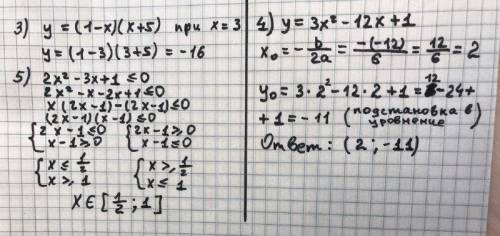 3) y = (1-x)(x+5) при x = 3
y = (1-3)(3+5) = -16
5) 2x² - 3x + 1 ≤ 0
2x² - x - 2x + 1 ≤ 0
x(2x-1) - (2x-1) ≤ 0
(2x-1)(x-1) ≤ 0
{2x-1 ≤ 0 {2x-1 ≥ 0
{x-1 ≥ 0 {x-1 ≤ 0
{x ≤ 1/2 {x ≥ 1/2
{x ≥ 1 {x ≤ 1
X ∈ [1/2; 1]
4) y = 3x² - 12x + 1
x₀ = -b/2a = -(-12)/6 = 12/6 = 2
y₀ = 3·2² - 12·2 + 1 = 12 - 24 +
+ 1 = -11 (подстановка в уровнение)
Ответ: (2; -11)